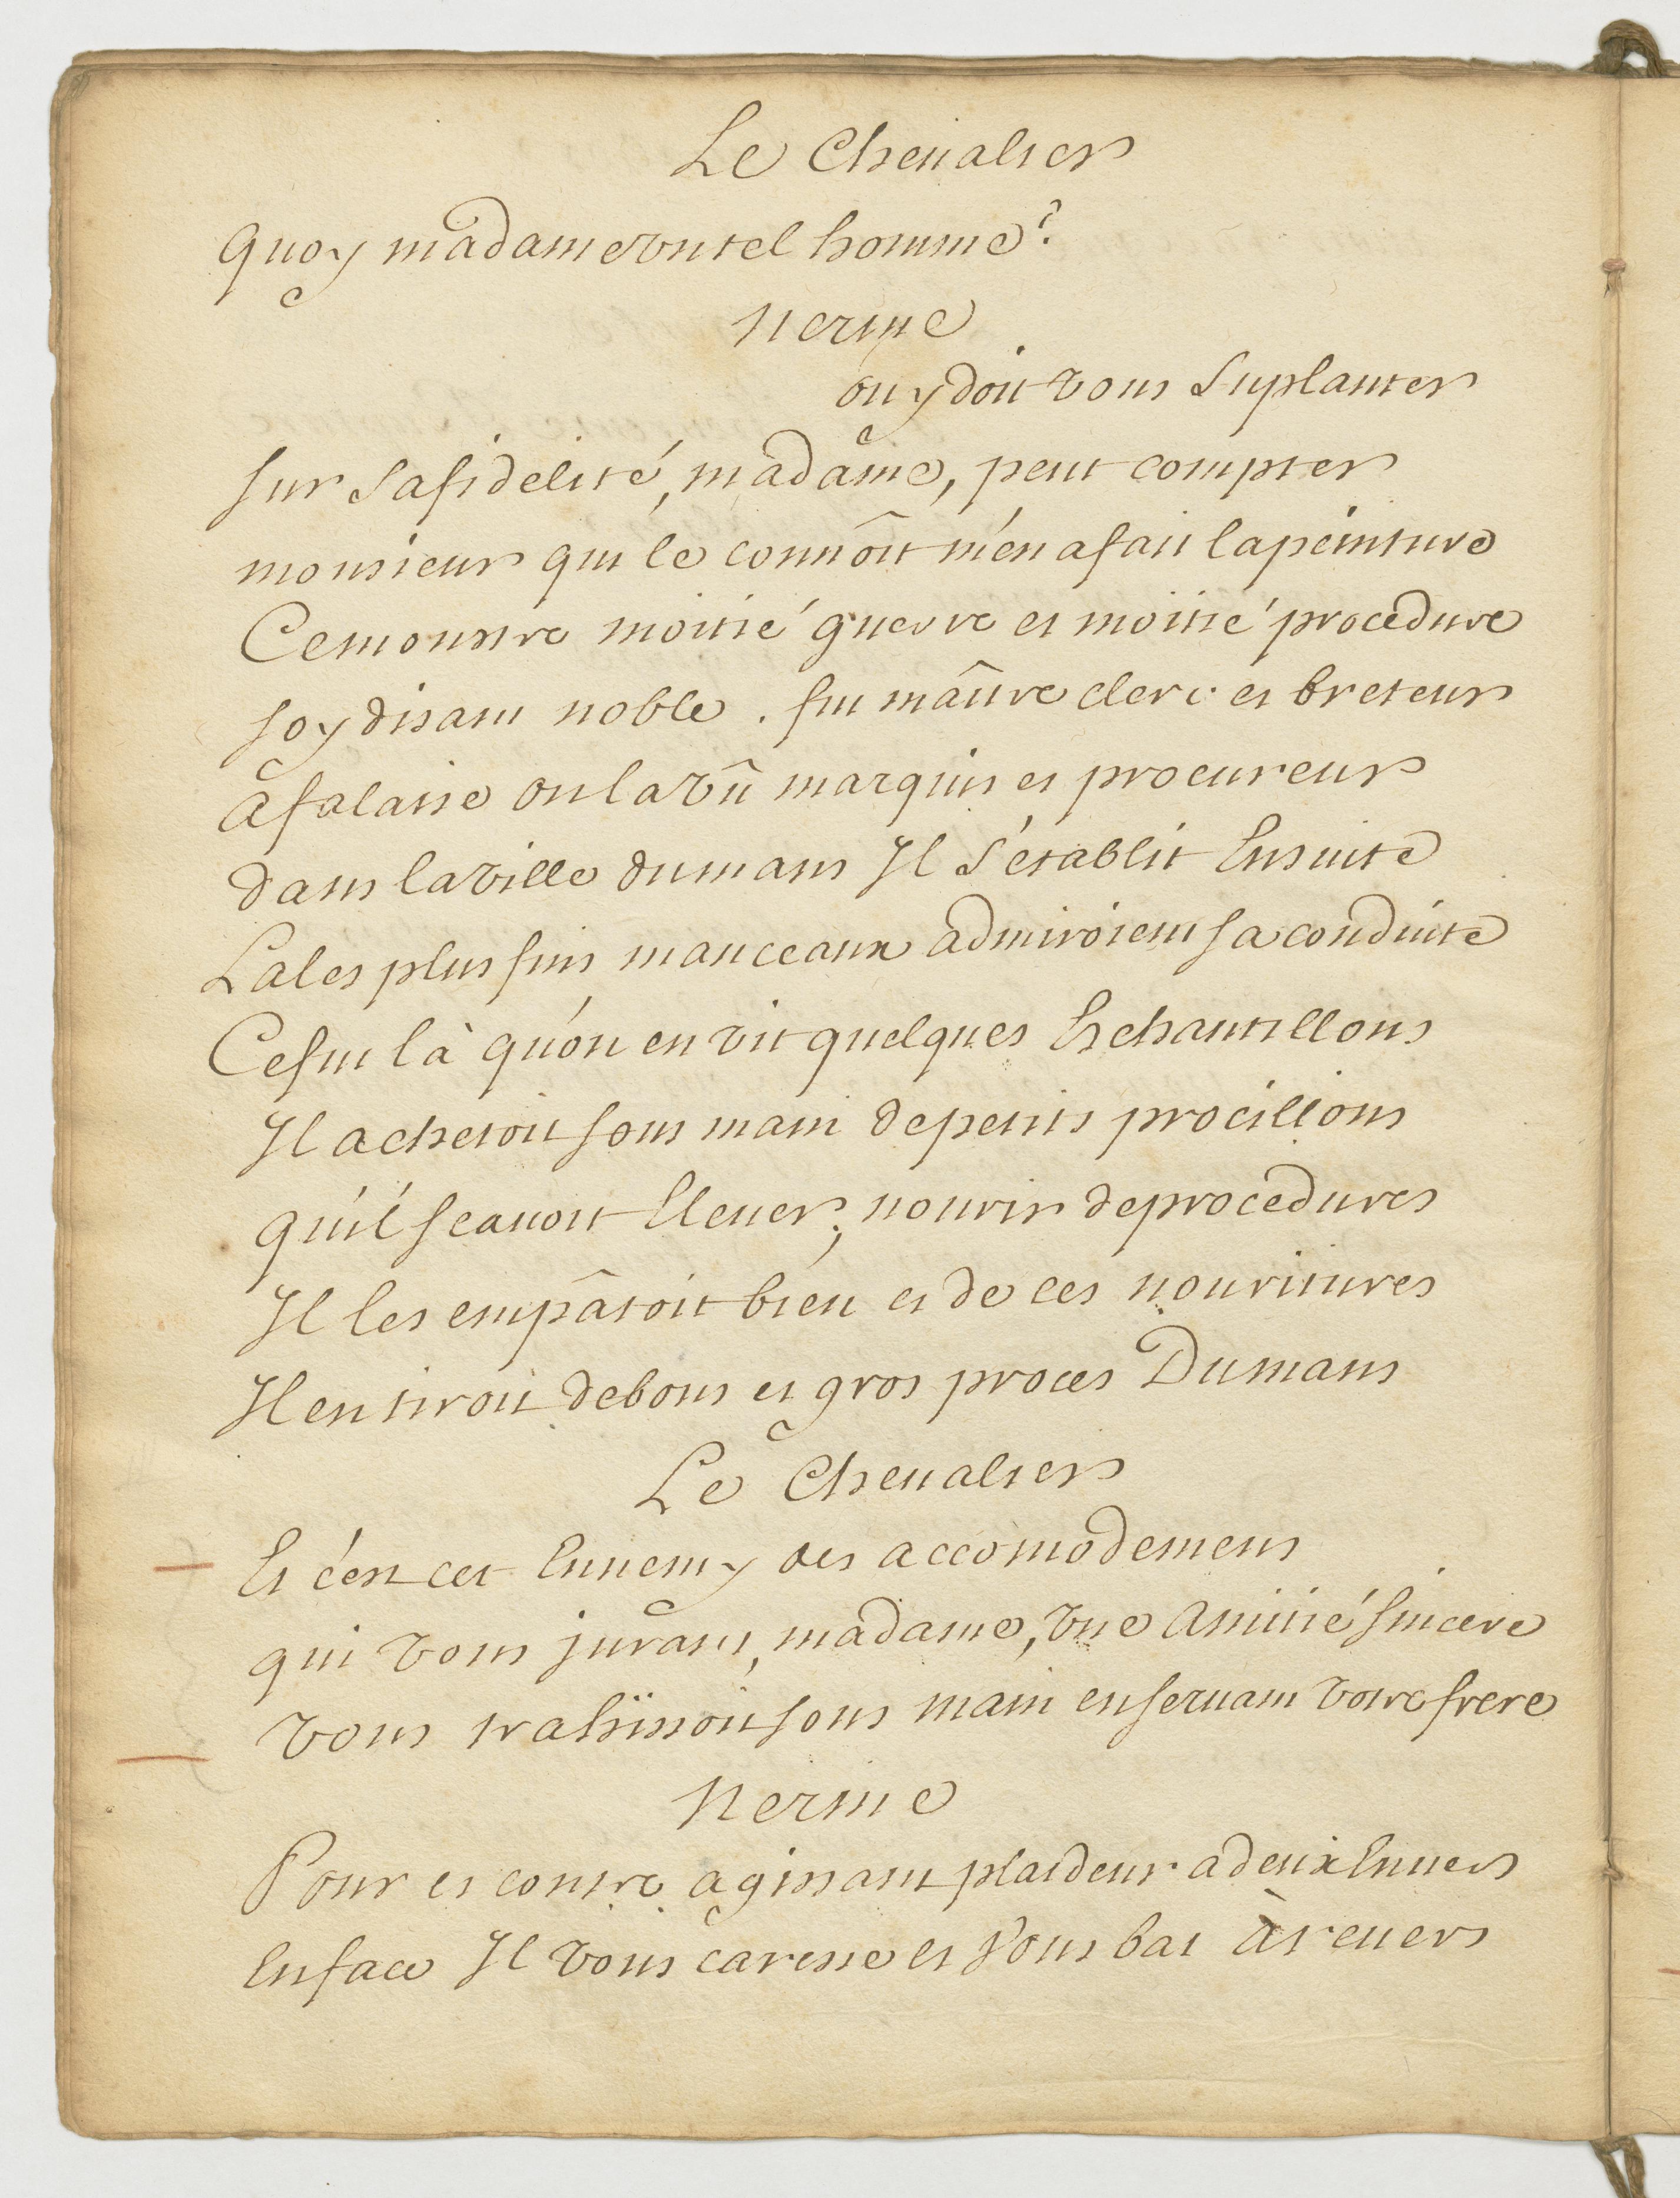 Le Cheualier
Quoy madame vn tel homme?
Nerine
ouy doit vous Suplanter
sur Sa fidelité, madame, peut compter
monsieur qui le connôit m'en a fait la peinture
Ce monstre moitié guerre et moitié procedure
soy disant noble. fut maître clerc et breteur
a falaise on la vû marquis et procureur
dans la ville du mans Il S'établit Ensuite
La les plus fins manceaux admiroient sa conduite
Ce fut là qu'on en vit quelques Echantillons
Il achetoit sous main de petits procillons
qu'il scauoit Eleuer, nourir de procedures
Il les empâtoit bien et de ces nouritures
Il en tiroit de bons et gros proces Du mans
Le Cheualier
Et c'est cet Ennemy des accomodemens
qui vous jurant, madame, vne Amitié sincere
vous trahissoit sous main en seruant votre frere
Nerine
Pour et contre agissant plaideur a deux Enuers
En face Il vous caresse et vous bat à reuers